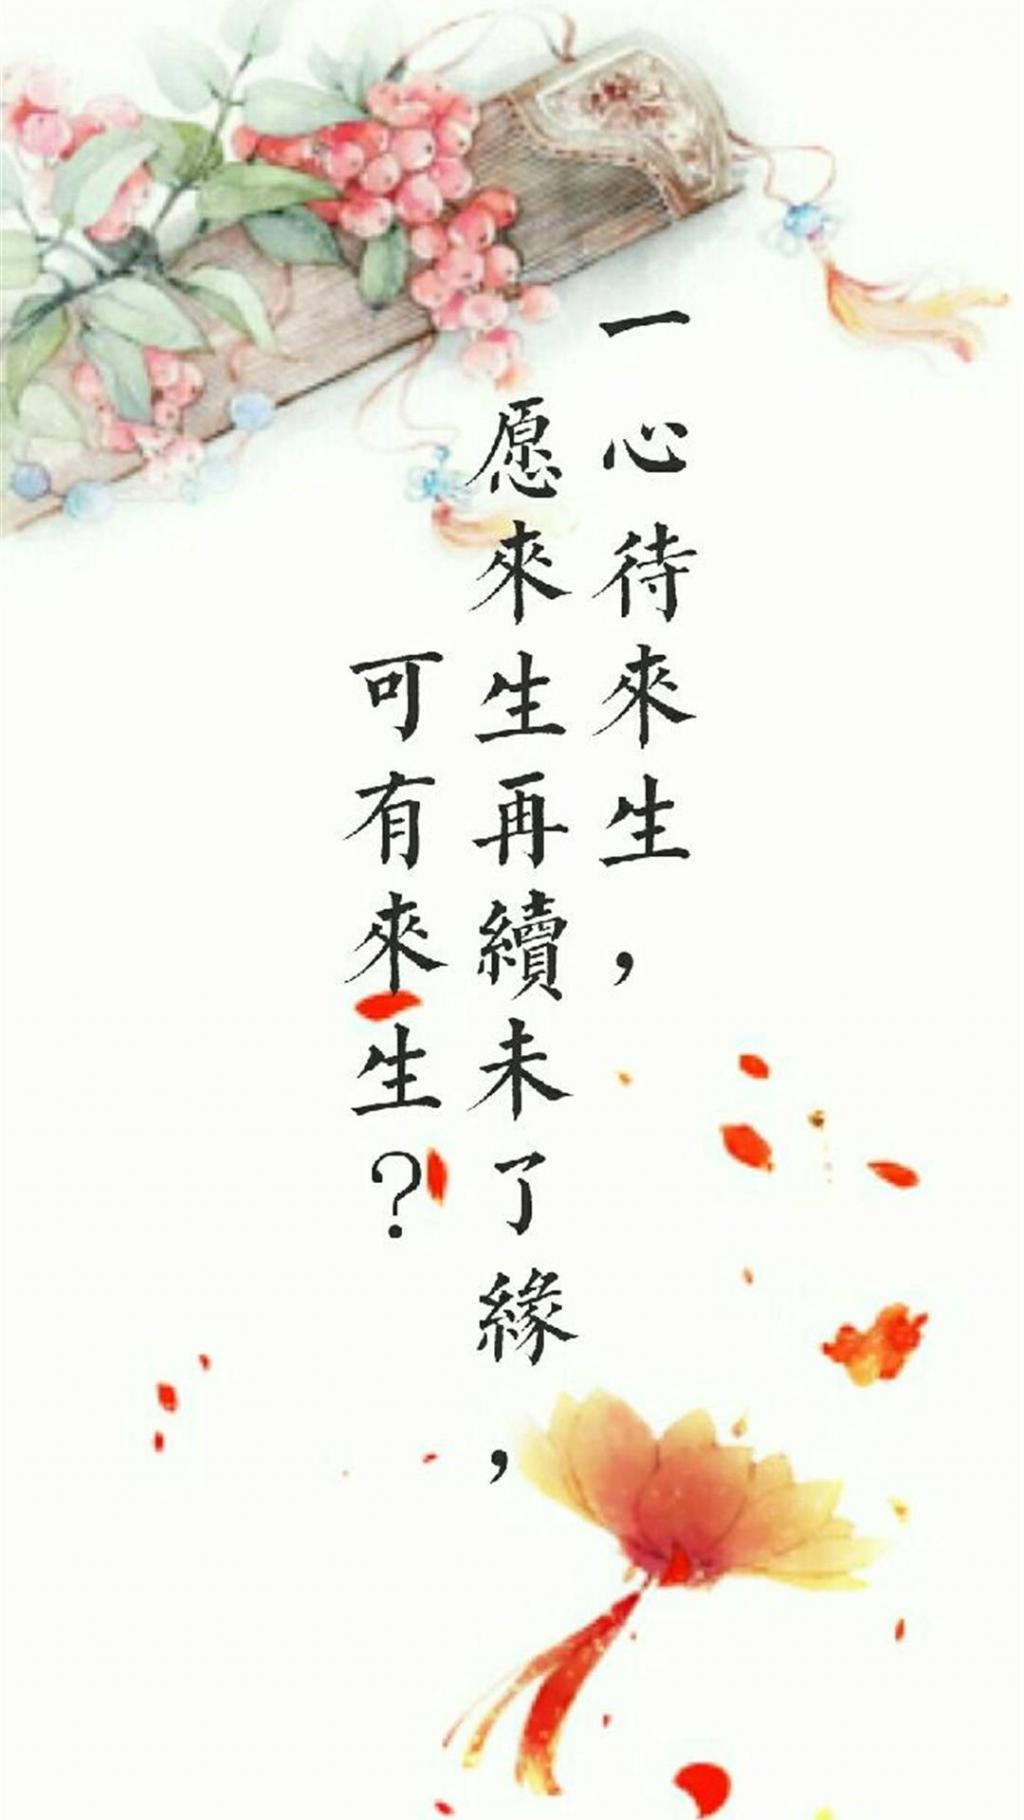 一心待來生，
愿來生再續未了緣，
可有來生？